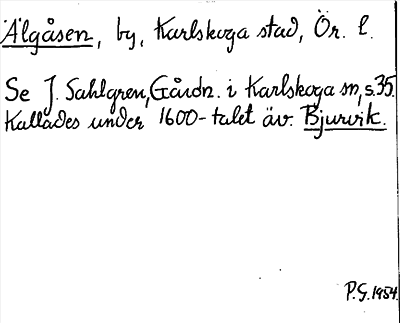 Älgåsen, by, Karlskoga stad, Ör. l.
Se J. Sahlgren, Gårdn. i Karlskoga sn, s. 35.
Kallades under 1600-talet äv. Bjurvik.
P.G. 1954.